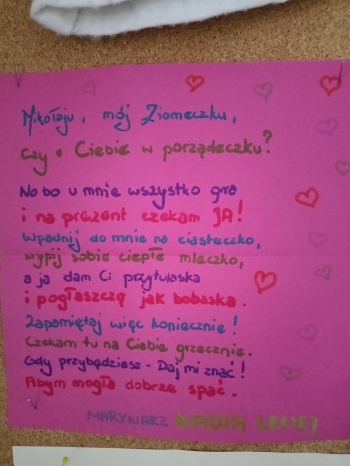 Mikołaju, mój Ziomeczku,
czy u Ciebie w porządeczku?
No bo u mnie wszystko gra
i na prezent czekam JA!
Wpadnij do mnie na ciasteczko,
wypij sobie ciepłe mleczko,
a ja dam Ci przytulaska
i pogłaszczę jak bobaska.
Zapamiętaj więc koniecznie!
Czekam tu na Ciebie grzecznie.
Gdy przybędziesz - Daj mi znać!
Abym mogła dobrze spać.
MARYNARZ